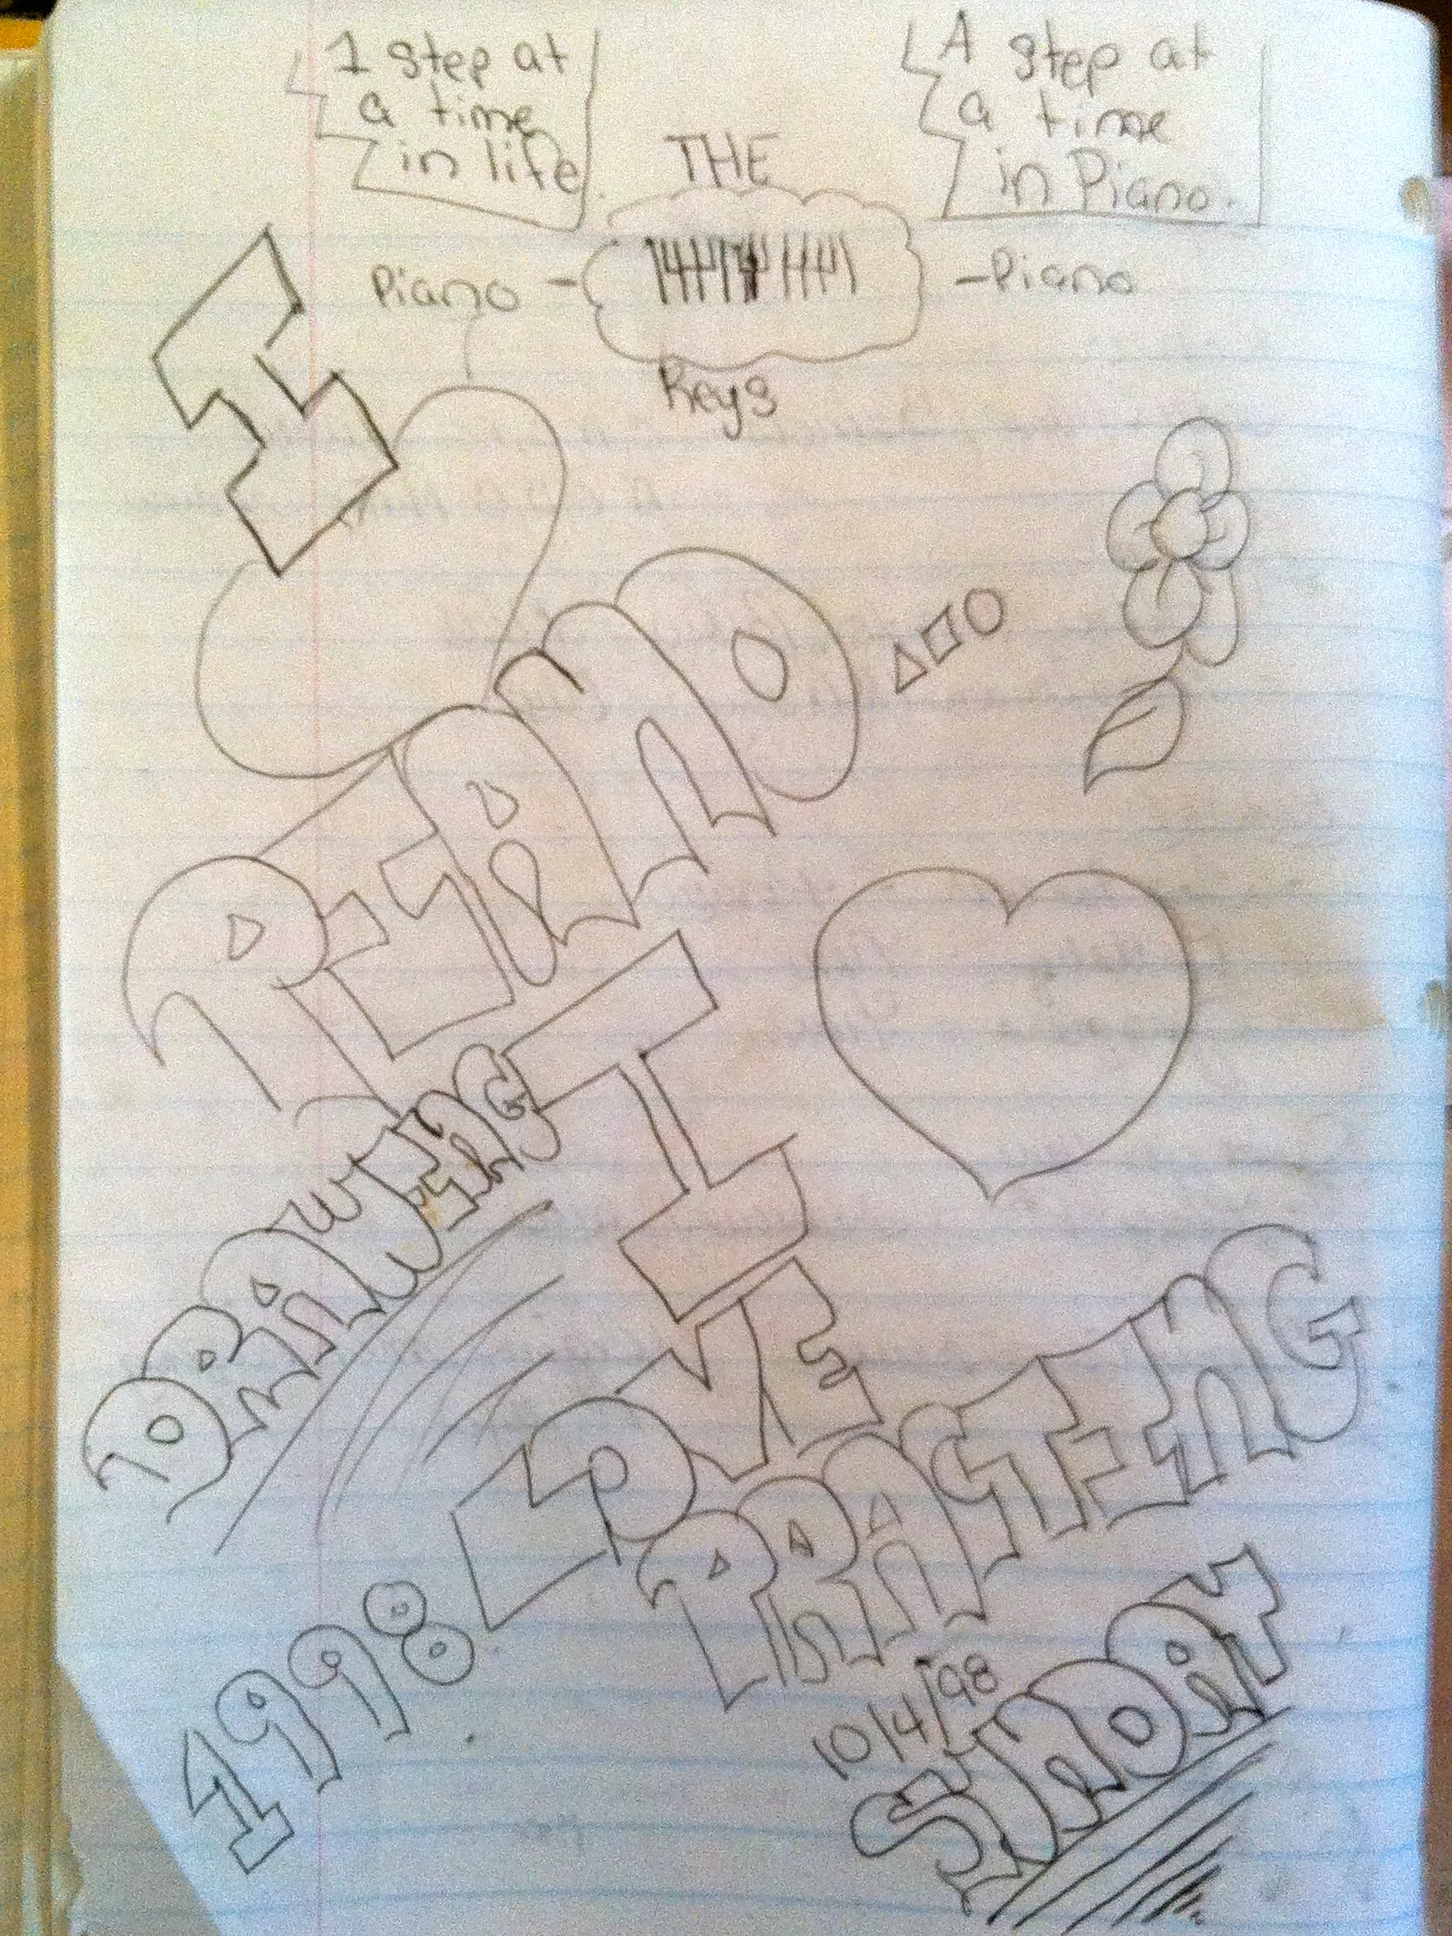 1 step at
a time
in life.
A step at
a time
in Piano.
THE
Piano -
- Piano
Keys
I
PIANO
DRAWING
I
LOVE
PRASTING
1998
10/4/98
SUNDAY